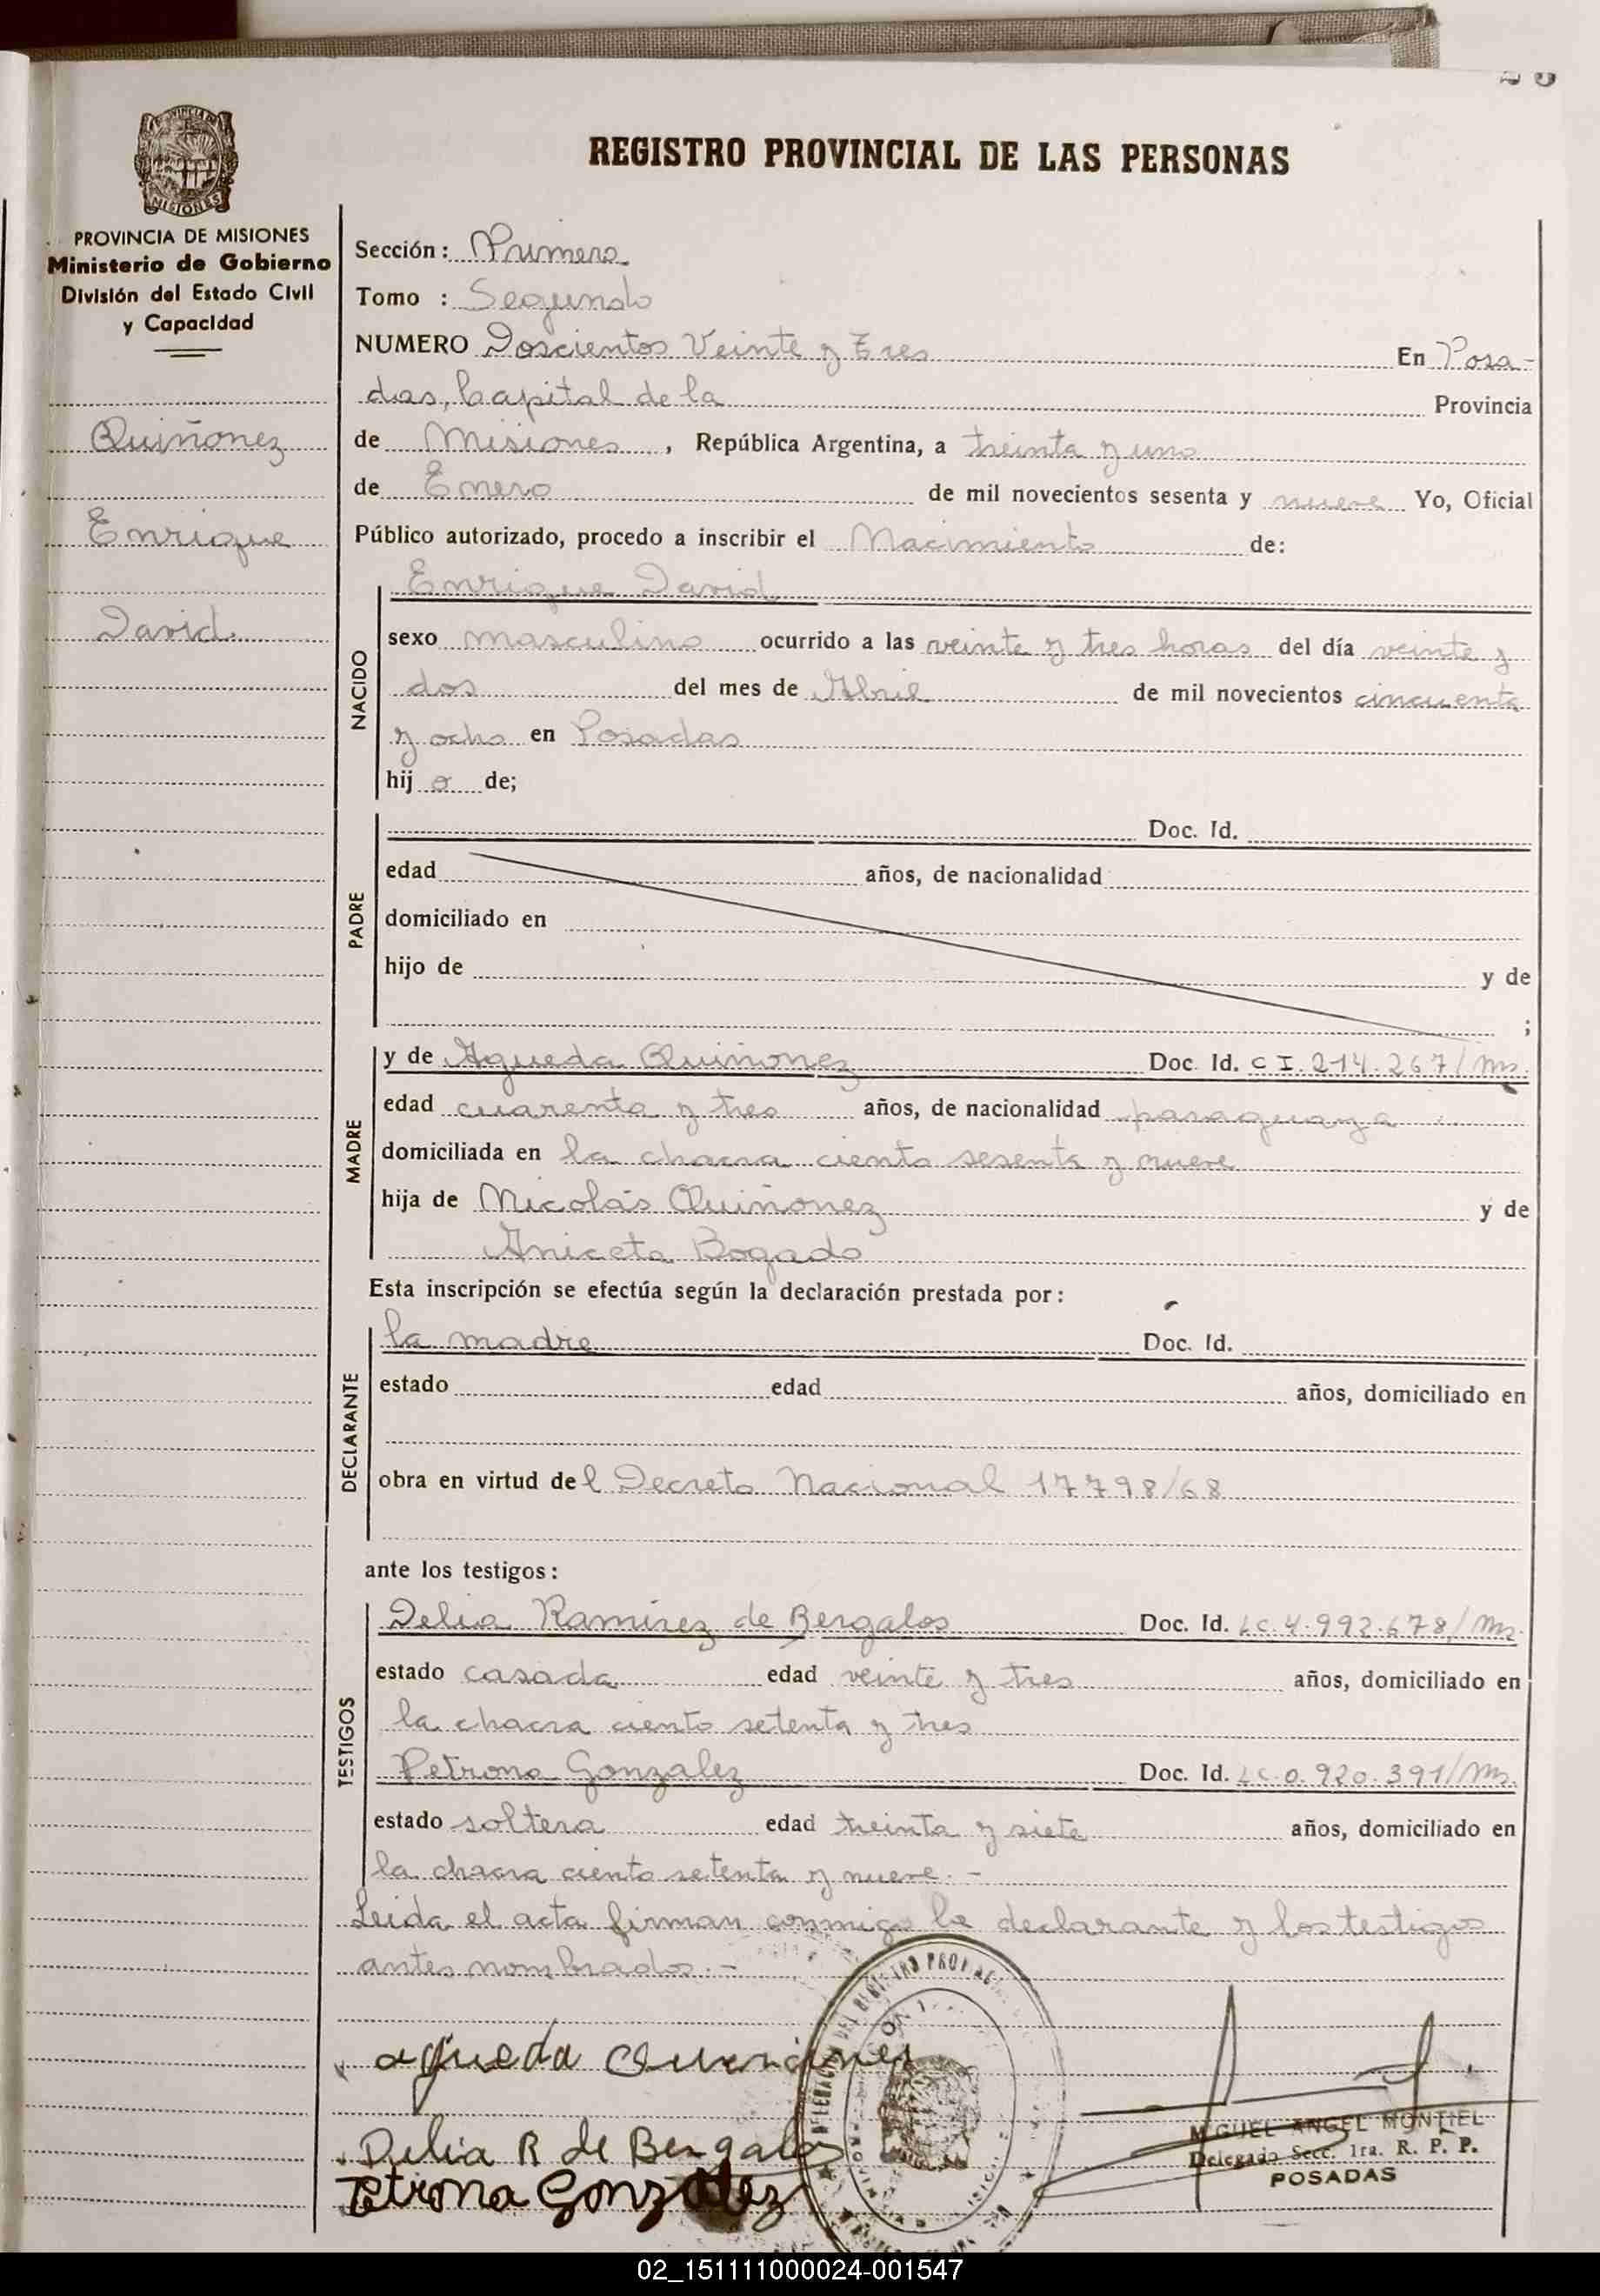 REGISTRO PROVINCIAL DE LAS PERSONAS
PROVINCIA DE MISIONES
Ministerio de Gobierno
División del Estado Civil
y Capacidad
Quiñonez
Enrique
David
Sección: Primera
Tomo : Segundo
NUMERO Doscientos Veinte y Tres En Posa-
das, Capital de la Provincia
de Misiones, República Argentina, a treinta y uno
de Enero de mil novecientos sesenta y nueve Yo, Oficial
Público autorizado, procedo a inscribir el Nacimiento de:
NACIDO
Enrique David
sexo masculino ocurrido a las veinte y tres horas del día veinte y
dos del mes de Abril de mil novecientos cincuenta
y ocho en Posadas
hij o de;
PADRE
Doc. Id.
edad años, de nacionalidad
domiciliado en
hijo de y de
;
MADRE
y de Agueda Quiñonez Doc. Id. C I. 214.267/Ms.
edad cuarenta y tres años, de nacionalidad paraguaya
domiciliada en la chacra ciento sesenta y nueve
hija de Nicolás Quiñonez y de
Aniceta Bogado
Esta inscripción se efectúa según la declaración prestada por:
DECLARANTE
la madre Doc. Id.
estado edad años, domiciliado en
obra en virtud del Decreto Nacional 17798/68
ante los testigos:
TESTIGOS
Delia Ramirez de Bergalos Doc. Id. LC.4.992.678/Ms.
estado casada edad veinte y tres años, domiciliado en
la chacra ciento setenta y tres
Petrona Gonzalez Doc. Id. LC.0.920.391/Ms.
estado soltera edad treinta y siete años, domiciliado en
la chacra ciento setenta y nueve.-
Leida el acta firman conmigo la declarante y los testigos
antes nombrados.-
agueda
Delia R de Bergalos
Petrona Gonzalez
MIGUEL ANGEL MONTIEL
Delegado Secc. 1ra. R. P. P.
POSADAS
02_151111000024-001547